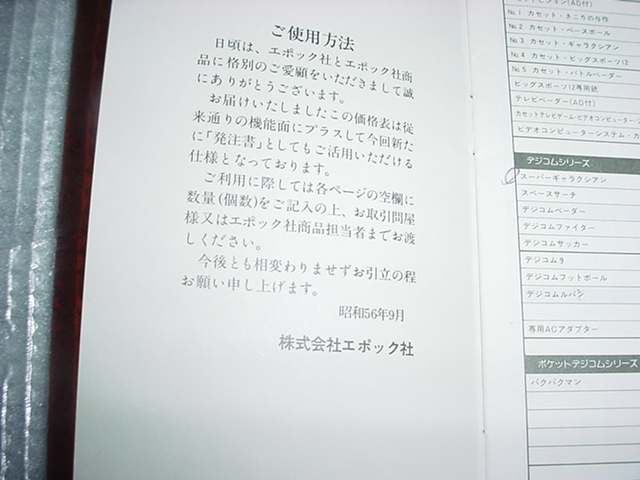 ご使用方法
日頃は、エポック社とエポック社商
品に格別のご愛顧をいただきまして誠
にありがとうございます。
お届けいたしましたこの価格表は従
来通りの機能面にプラスして今回新た
に「発注書」としてもご活用いただける
仕様となっております。
ご利用に際しては各ページの空欄に
数量(個数)をご記入の上、お取引問屋
様又はエポック社商品担当者までお渡
しください。
今後とも相変わりませずお引立の程
お願い申し上げます。
昭和56年9月
株式会社エポック社
(AD付)
No.1 カセット・きこりの与作
No.2 カセット・ベースボール
No.3 カセット・ギャラクシアン
No.4 カセット・ビッグスポーツ12
No.5 カセット・バトルベーダー
ビッグスポーツ12専用銃
テレビベーダー(AD付)
カセットテレビゲーム・ビデオコンピューター・
ビデオコンピューターシステム・カ
デジコムシリーズ
スーパーギャラクシアン
スペースサーチ
デジコムベーダー
デジコムファイター
デジコムサッカー
デジコム9
デジコムフットボール
デジコムルパン
専用ACアダプター
ポケットデジコムシリーズ
パクパクマン